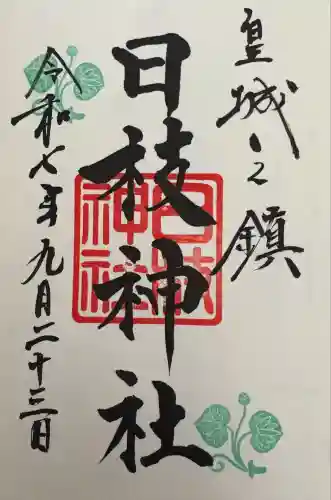 皇城之鎮
日枝神社
令和七年九月二十三日
日枝神社